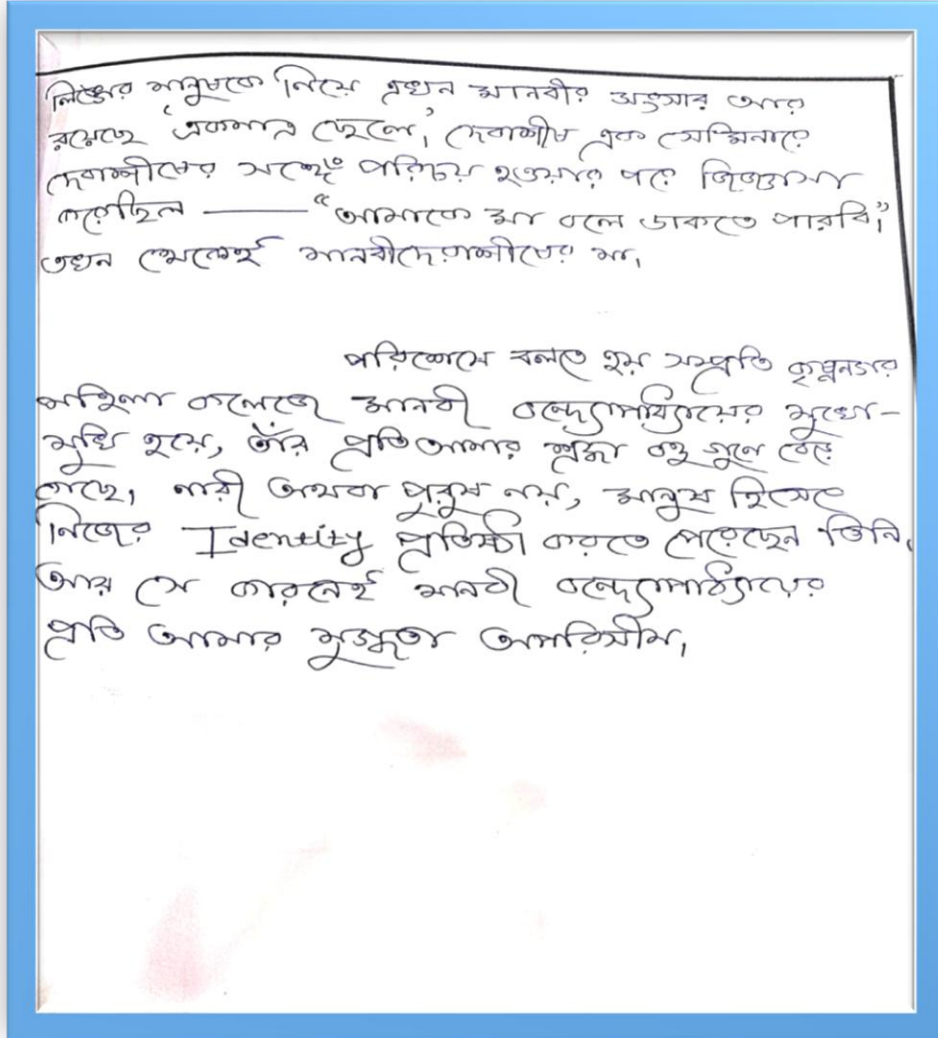 লিঙ্গের মানুষকে নিয়ে এখন মানবীর সংসার আর
রয়েছে 'একমাত্র ছেলে,' দেবাশীষ এক সেমিনারে
দেবাশীষের সঙ্গে পরিচয় হওয়ার পরে জিজ্ঞাসা
করেছিল —— "আমাকে মা বলে ডাকতে পারবি।"
তখন থেকেই মানবীদেবাশীষের মা,
পরিশেষে বলতে হয় সম্প্রতি কৃষ্ণনগর
মহিলা কলেজে মানবী বন্দ্যোপাধ্যায়ের মুখো-
মুখি হয়ে, তাঁর প্রতি আমার শ্রদ্ধা বহু গুনে বেড়ে
গেছে, নারী অথবা পুরুষ নয়, মানুষ হিসেবে
নিজের Identity প্রতিষ্ঠা করতে পেরেছেন তিনি,
আর সে কারনেই মানবী বন্দ্যোপাধ্যায়ের
প্রতি আমার মুগ্ধতা অপরিসীম,